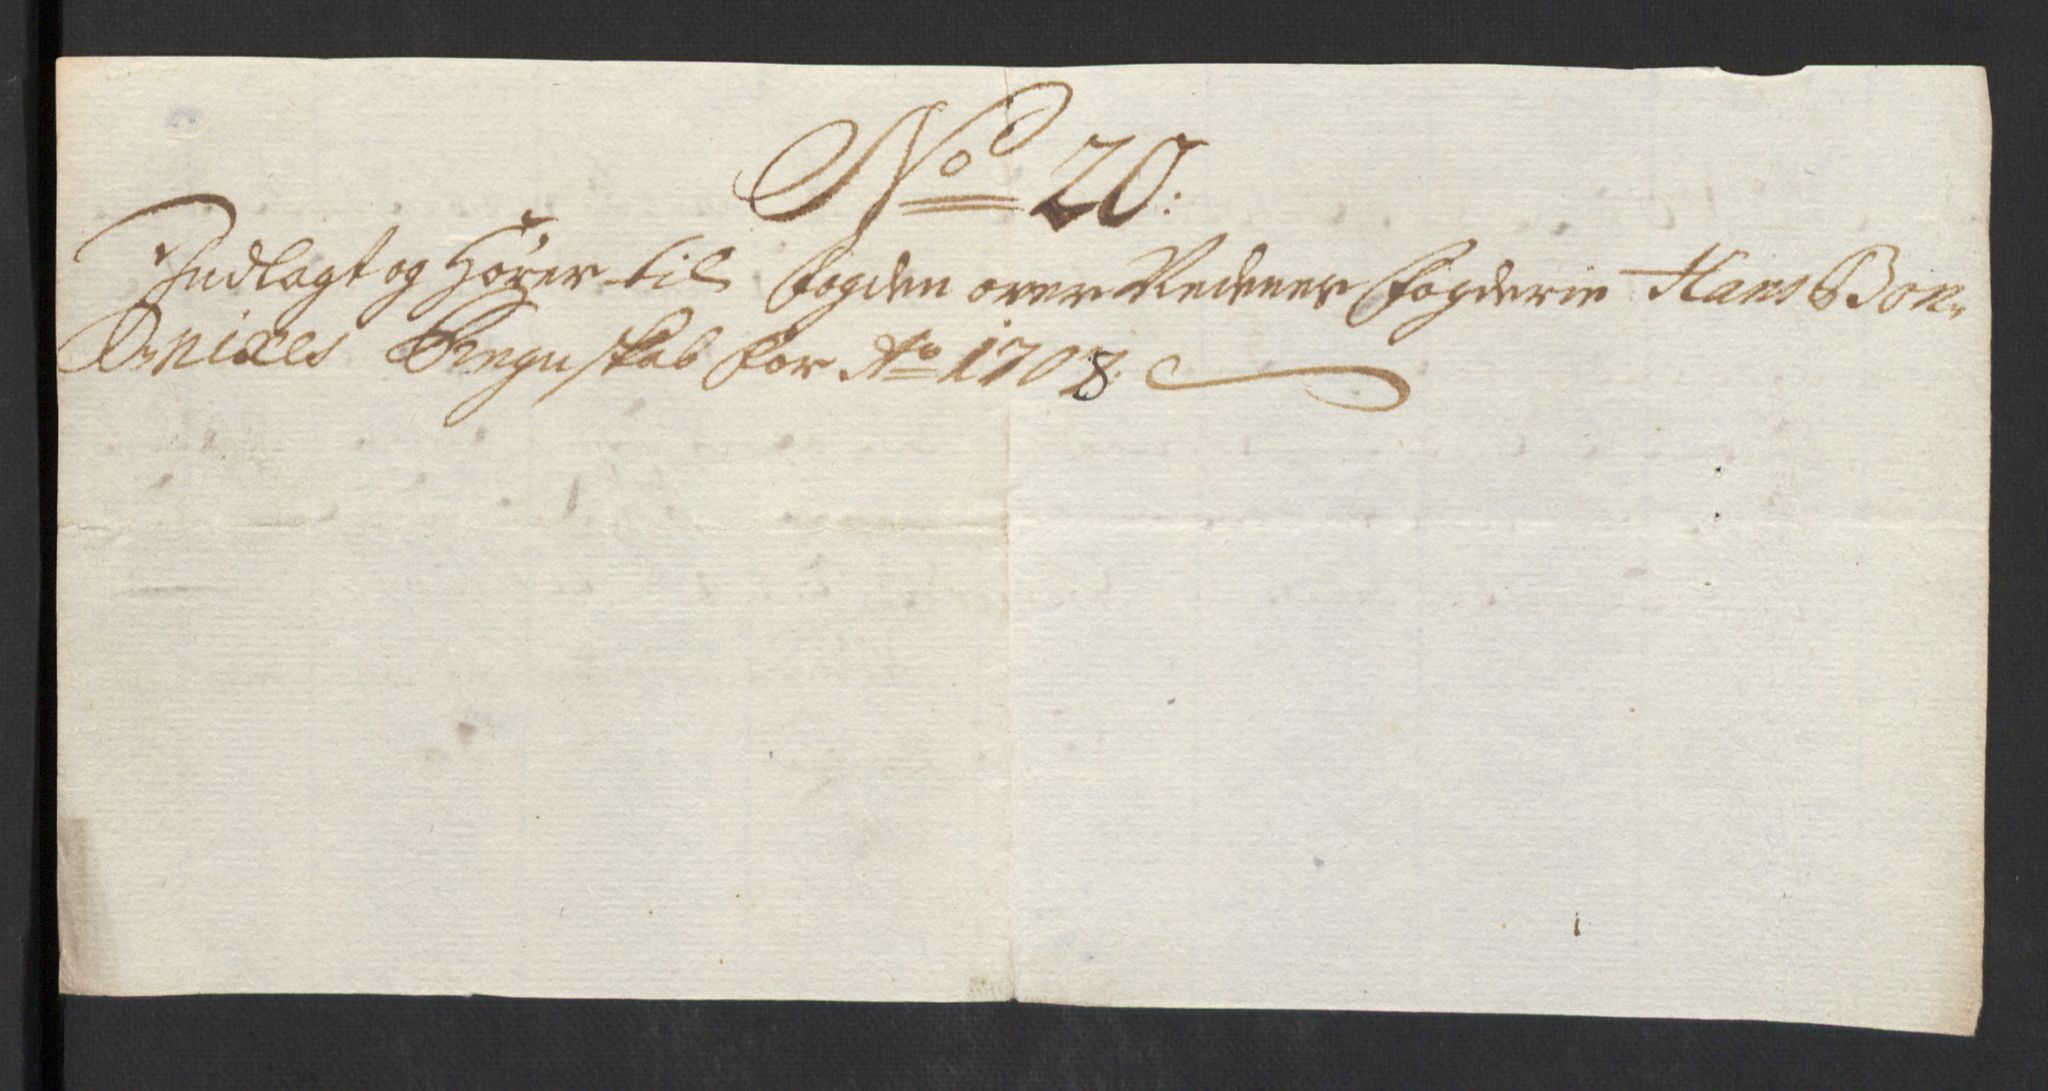 No 20:
Indlagt og Hører til fogden over Nedenes fogderie Hans Bon„
Regnskab for Ao 1708.